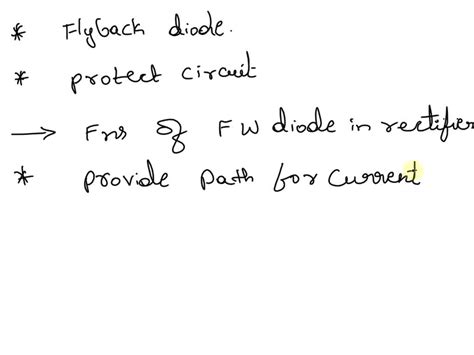 * Flyback diode.
* protect circuit
→ Fns of FW diode in rectifier
* provide path for current